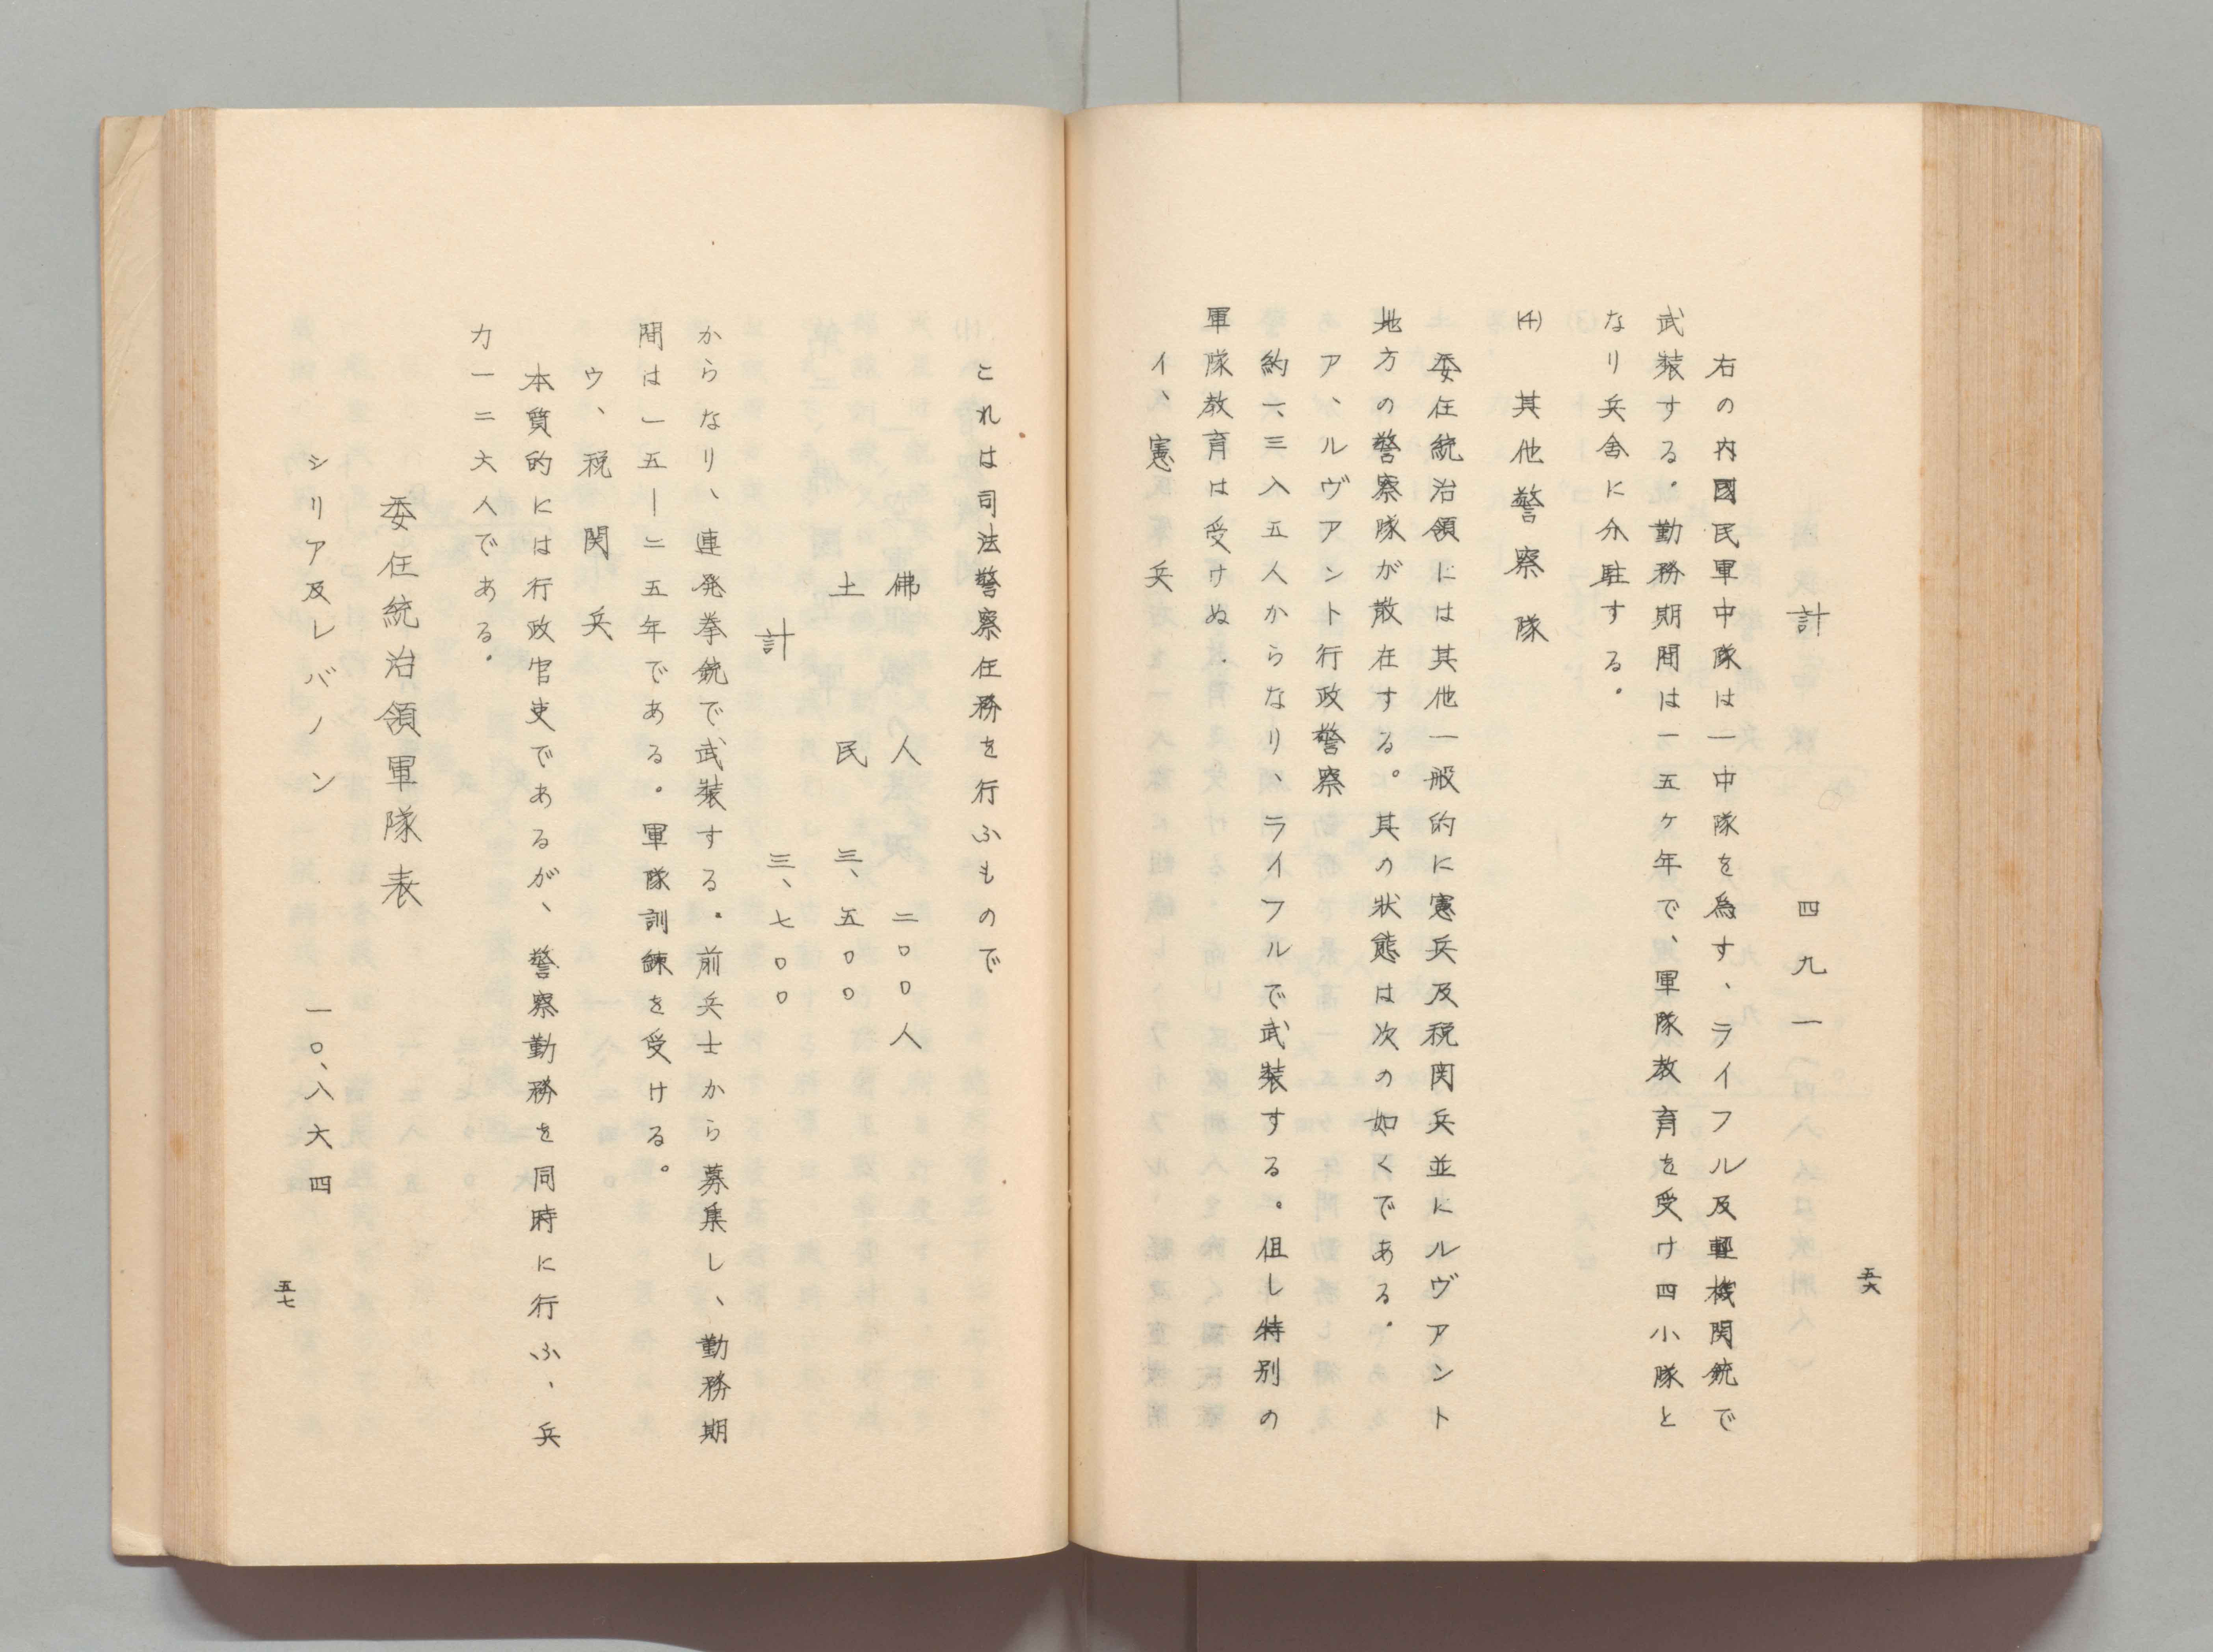 五六
計　四九一
右の内國民軍中隊は一中隊を為す、ライフル及輕機関銃で
武裝する。勤務期間は一五ヶ年で、軍隊教育を受け四小隊と
なり兵舍に分駐する。
(4)　其他警察隊
委任統治領には其他一般的に憲兵及税関兵並にルヴアント
地方の警察隊が散在する。其の状態は次の如くである。
ア、ルヴアント行政警察
約一、三八五人からなり、ライフルで武裝する。但し特別の
軍隊教育は受けぬ.
イ、憲兵
これは司法警察任務を行ふもので
佛人　二〇〇人
土民　三、五〇〇
計　三、七〇〇
からなり、連発拳銃で武裝する。前兵士から募集し、勤務期
間は一五—二五年である。軍隊訓練を受ける。
ウ、税関兵
本質的には行政官吏であるが、警察勤務を同時に行ふ、兵
力一二六人である。
委任統治領軍隊表
シリア及レバノン　一〇、八六四
五七